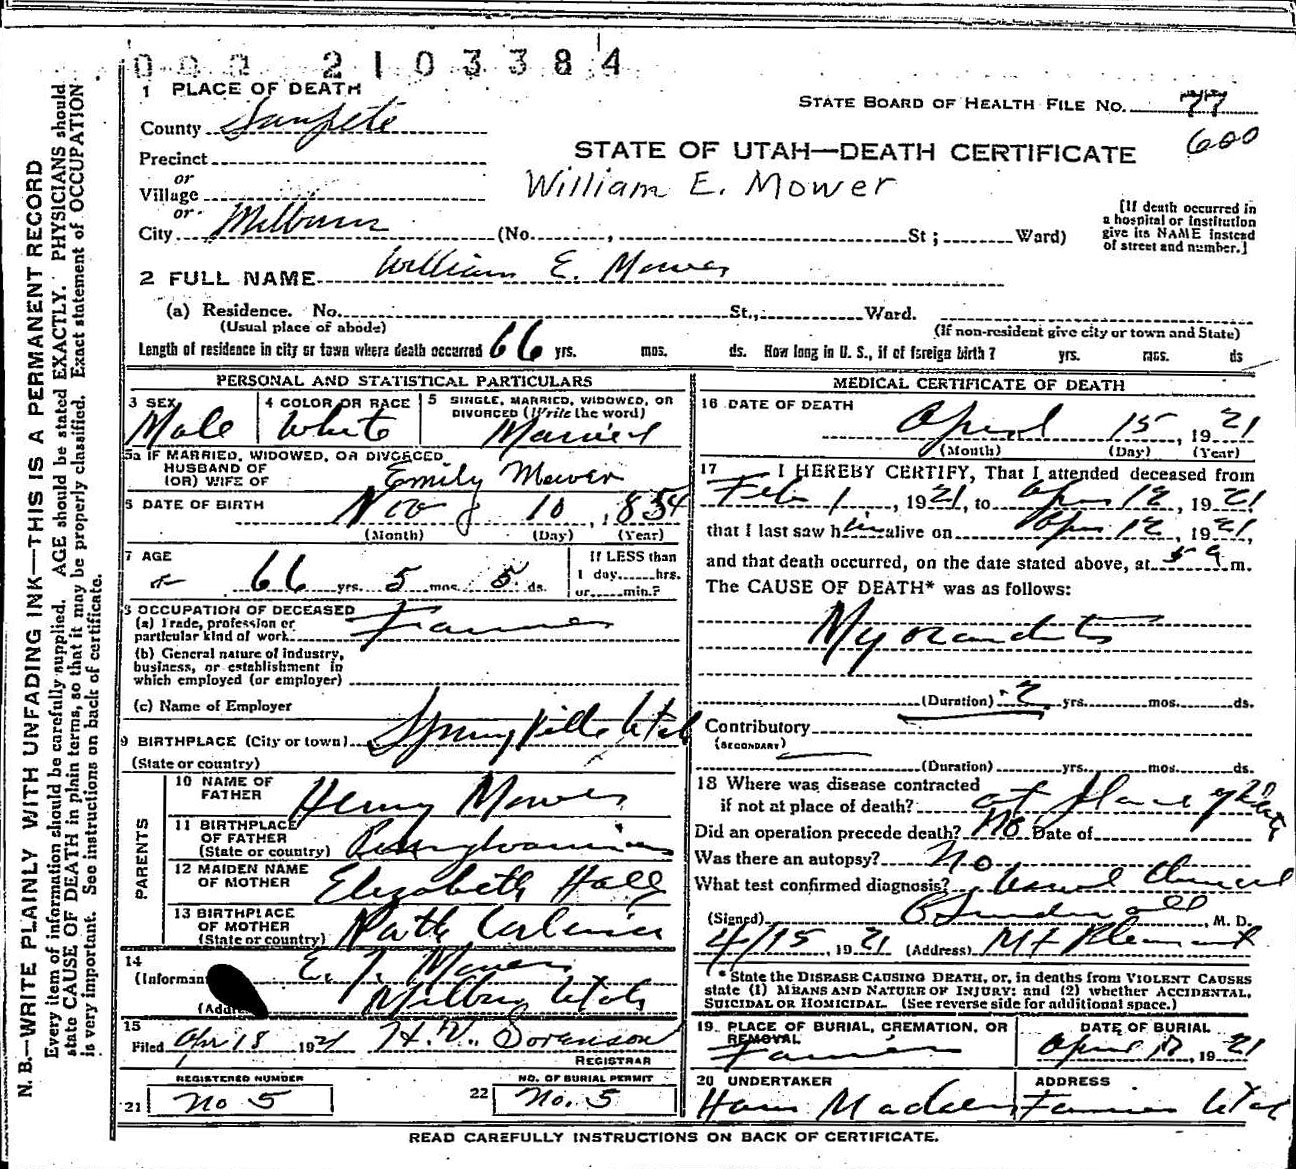 000 2103384
1 PLACE OF DEATH
STATE BOARD OF HEALTH FILE NO. 77
County Sanpete
600
STATE OF UTAH—DEATH CERTIFICATE
Precinct
or
Village
William E. Mower
or
City Milburn (No. , St ; Ward)
[If death occurred in
a hospital or institution
give its NAME instead
of street and number.]
2 FULL NAME William E. Mower
(a) Residence. No. St., Ward.
(Usual place of abode) (If non-resident give city or town and State)
Length of residence in city or town where death occurred 66 yrs. mos. ds. How long in U. S., if of foreign birth? yrs. mos. ds
PERSONAL AND STATISTICAL PARTICULARS
3 SEX Male
4 COLOR OR RACE White
5 SINGLE, MARRIED, WIDOWED, OR
DIVORCED (Write the word)
Married
5a IF MARRIED, WIDOWED, OR DIVORCED
HUSBAND OF
(OR) WIFE OF Emily Mower
6 DATE OF BIRTH Nov 10, 1854
(Month) (Day) (Year)
7 AGE
66 yrs. 5 mos. 5 ds.
If LESS than
1 day......hrs.
or......min.?
8 OCCUPATION OF DECEASED
(a) Trade, profession or
particular kind of work Farmer
(b) General nature of industry,
business, or establishment in
which employed (or employer)
(c) Name of Employer
9 BIRTHPLACE (City or town) Springville Utah
(State or country)
PARENTS
10 NAME OF
FATHER Henry Mower
11 BIRTHPLACE
OF FATHER
(State or country) Pennsylvania
12 MAIDEN NAME
OF MOTHER Elizabeth Hall
13 BIRTHPLACE
OF MOTHER
(State or country) North Carolina
14
(Informan E. J. Mower
(Addre Milburn Utah
15
Filed Apr 18 1921 H. V. Sorenson
REGISTRAR
21 REGISTERED NUMBER
No 5
22 NO. OF BURIAL PERMIT
No. 5
MEDICAL CERTIFICATE OF DEATH
16 DATE OF DEATH
April 15, 1921
(Month) (Day) (Year)
17 I HEREBY CERTIFY, That I attended deceased from
Feb 1, 1921, to Apr 12, 1921
that I last saw him alive on Apr 12, 1921,
and that death occurred, on the date stated above, at 5 a m.
The CAUSE OF DEATH* was as follows:
Myocarditis
(Duration) 2 yrs. mos. ds.
Contributory
(SECONDARY)
(Duration) yrs. mos. ds.
18 Where was disease contracted
if not at place of death? at place of Death
Did an operation precede death? No Date of
Was there an autopsy? No
What test confirmed diagnosis? Usual Clinical
(Signed) Sundwall, M. D.
4/15, 1921 (Address) Mt Pleasant
* State the DISEASE CAUSING DEATH, or, in deaths from VIOLENT CAUSES
state (1) MEANS AND NATURE OF INJURY; and (2) whether ACCIDENTAL,
SUICIDAL OR HOMICIDAL. (See reverse side for additional space.)
19 PLACE OF BURIAL, CREMATION, OR
REMOVAL
DATE OF BURIAL
April 17, 1921
20 UNDERTAKER
Hans Madsen
ADDRESS
Utah
READ CAREFULLY INSTRUCTIONS ON BACK OF CERTIFICATE.
N. B.—WRITE PLAINLY WITH UNFADING INK—THIS IS A PERMANENT RECORD
Every item of information should be carefully supplied. AGE should be stated EXACTLY. PHYSICIANS should
state CAUSE OF DEATH in plain terms, so that it may be properly classified. Exact statement of OCCUPATION
is very important. See instructions on back of certificate.